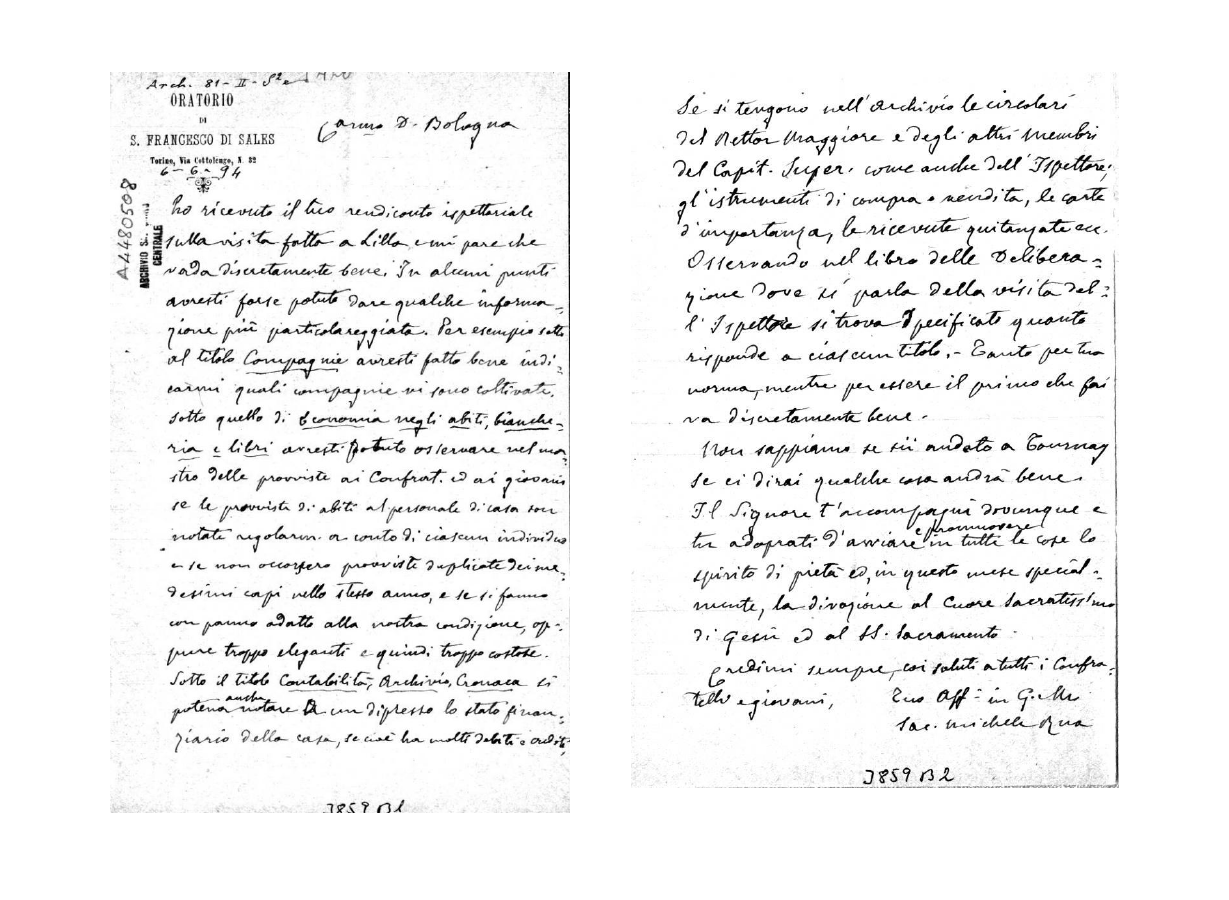 Arch. 81-II-S2e
ORATORIO
DI
S. FRANCESCO DI SALES
Torino, Via Cottolengo, N. 32
6-6-94
A4480508
ARCHIVIO
CENTRALE
Carmo D. Bologna
ho ricevuto il tuo rendiconto ispettoriale
sulla visita fatta a Lilla, e mi pare che
vada discretamente bene. In alcuni punti
avresti forse potuto dare qualche informa=
zione più particolareggiata. Per esempio sotto
al titolo Compagnie avresti fatto bene indi=
carmi quali compagnie vi sono coltivate.
Sotto quello di Economia negli abiti, bianche=
ria e libri avresti potuto osservare nel
stro delle provviste ai Confrat. ed ai giovani
se le provviste di abiti al personale di casa son
notate regolarm. a conto di ciascun individuo
e se non occorsero provviste duplicate dei me=
desimi capi nello stesso anno, e se si fanno
con panno adatto alla nostra condizione, op=
pure troppo eleganti e quindi troppo costose.
Sotto il titolo Contabilità, Archivio, Cronaca si
poteva anche notare un dipresso lo stato finan=
ziario della casa, se cioè ha molti debiti e crediti;
J859 B1
Se si tengono nell'Archivio le circolari
del Rettor Maggiore e degli altri membri
del Capit. Super. come anche dell'Ispettore;
gl'istrumenti di compra o vendita, le carte
d'importanza, le ricevute quitanzate ecc.
Osservando nel libro delle Delibera=
zione dove si parla della visita del=
l'Ispettore si trova specificato quanto
risponde a ciascun titolo. - Tanto per tua
norma, mentre per essere il primo che fai
va discretamente bene.
Non sappiamo se sii andato a Tournay
se ci dirai qualche cosa andrà bene.
Il Signore t'accompagni dovunque e
tu adoprati d'avviare e promuovere in tutte le cose lo
spirito di pietà ed, in questo mese special=
mente, la divozione al Cuore Sacratissimo
di Gesù ed al SS. Sacramento.
Credimi sempre, coi saluti a tutti i Confra=
telli e giovani, Tuo Aff= in G. e M.
Sac. Michele Rua
J859 B2